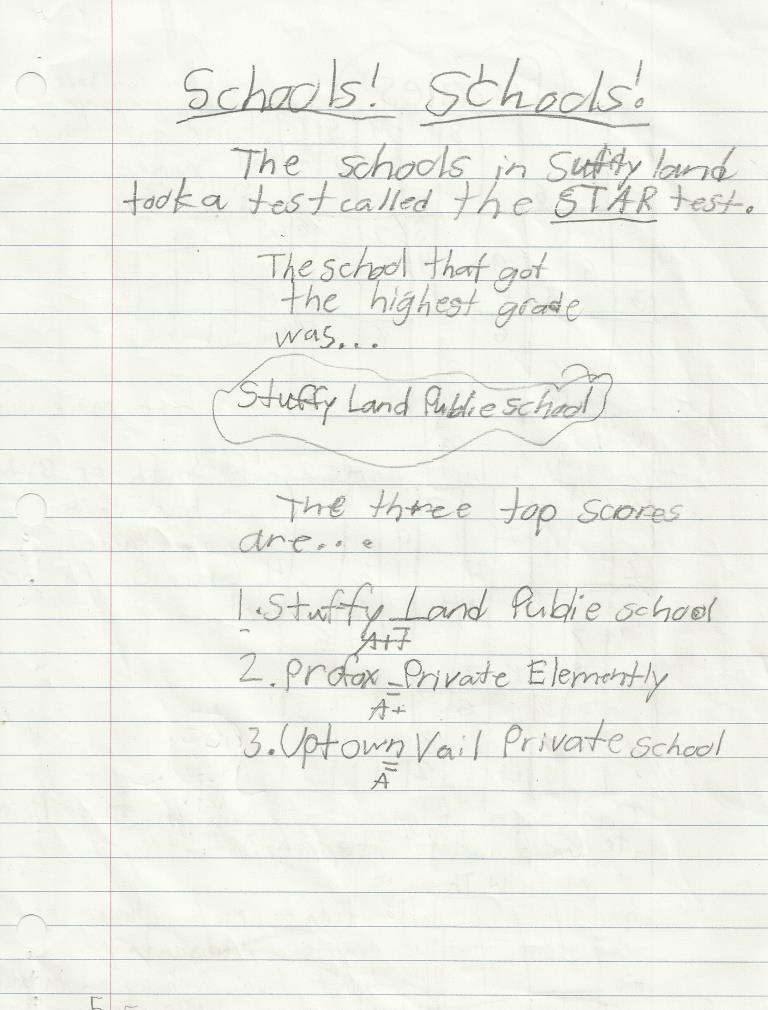 Schools! Schools!
The schools in Suffy land
took a test called the STAR test.
The school that got
the highest grade
was...
Stuffy Land Public school
The three top scores
are...
1. Stuffy Land Public school
=
2. Profax Private Elemently
=
A+
3. Uptown Vail Private school
=
A